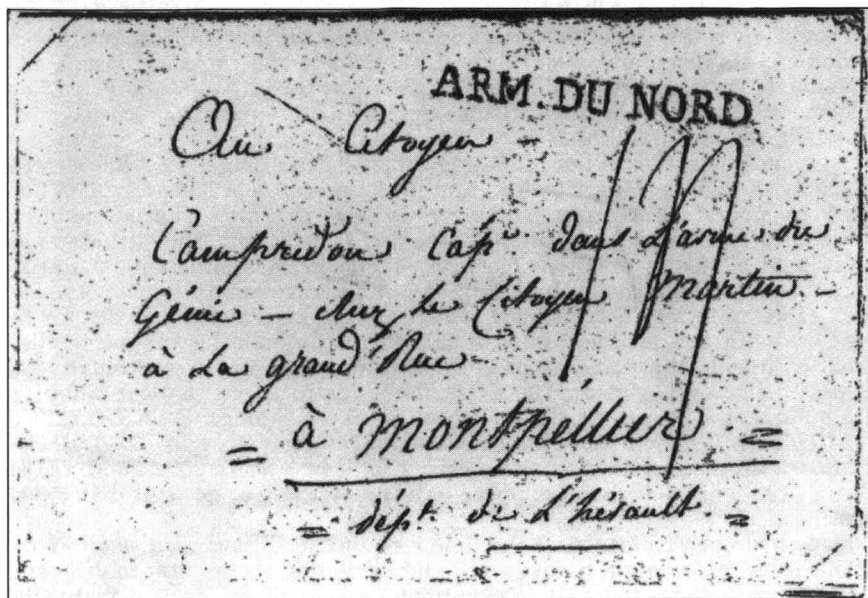 ARM. DU NORD
Au Citoyen -
Campredon Cap.ⁿ dans L'arme du
Génie - chez le Citoyen Martin -
à La grand'Rue -
= à Montpellier =
= dép.ᵗ de L'hérault. =